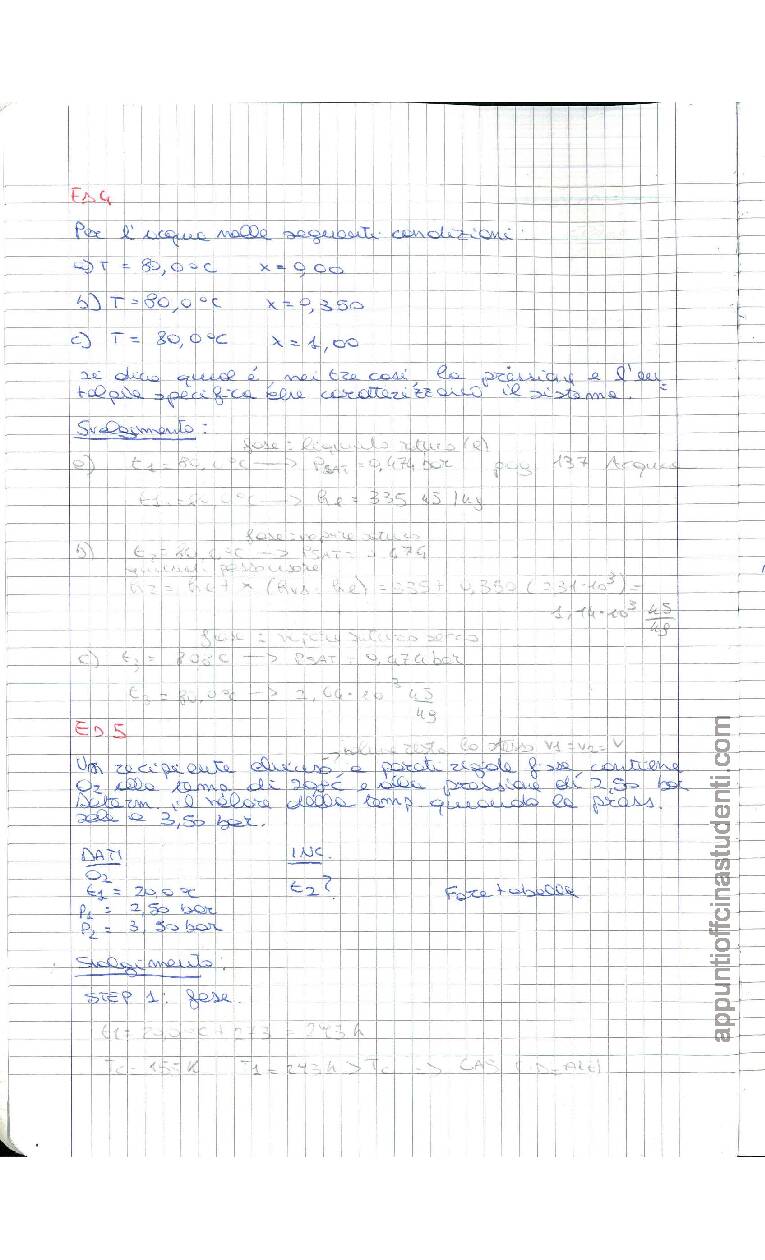 ES 4
Per l'acqua nelle seguenti condizioni:
a) T = 80,0°C x = 0,00
b) T = 80,0°C x = 0,350
c) T = 80,0°C x = 1,00
si dica qual è, nei tre casi, la pressione e l'en=
talpia specifica che caratterizzano il sistema.
Svolgimento:
fase: liquido saturo (l)
a) t1 = 80,0°C → PSAT = 0,474 bar pag 137 Acqua
t1 = 80,0°C → hl = 335 kJ/kg
fase: vapore saturo
b) t2 = 80,0°C → PSAT = 0,474
h2 = hl + x (hvs - hl) = 335 + 0,350 (2,31·10³) =
1,14·10³ kJ/kg
fase: vapore saturo secco
c) t3 = 80,0°C → PSAT = 0,474 bar
t3 = 80,0°C → 2,64·10³ kJ/kg
ES 5
→ volume resta lo stesso V1 = V2 = V
Un recipiente chiuso a pareti rigide fisse contiene
O2 alla temp. di 20,0°C e alla pressione di 2,50 bar
Determ. il valore della temp quando la press.
sale a 3,50 bar.
DATI INC.
O2
t1 = 20,0°C t2? Fare tabella
P1 = 2,50 bar
P2 = 3,50 bar
Svolgimento:
STEP 1: fase.
t1 = 20,0°C + 273 = 293 K
Tc = 155 K T1 = 293 K > Tc => GAS
appuntiofficinastudenti.com